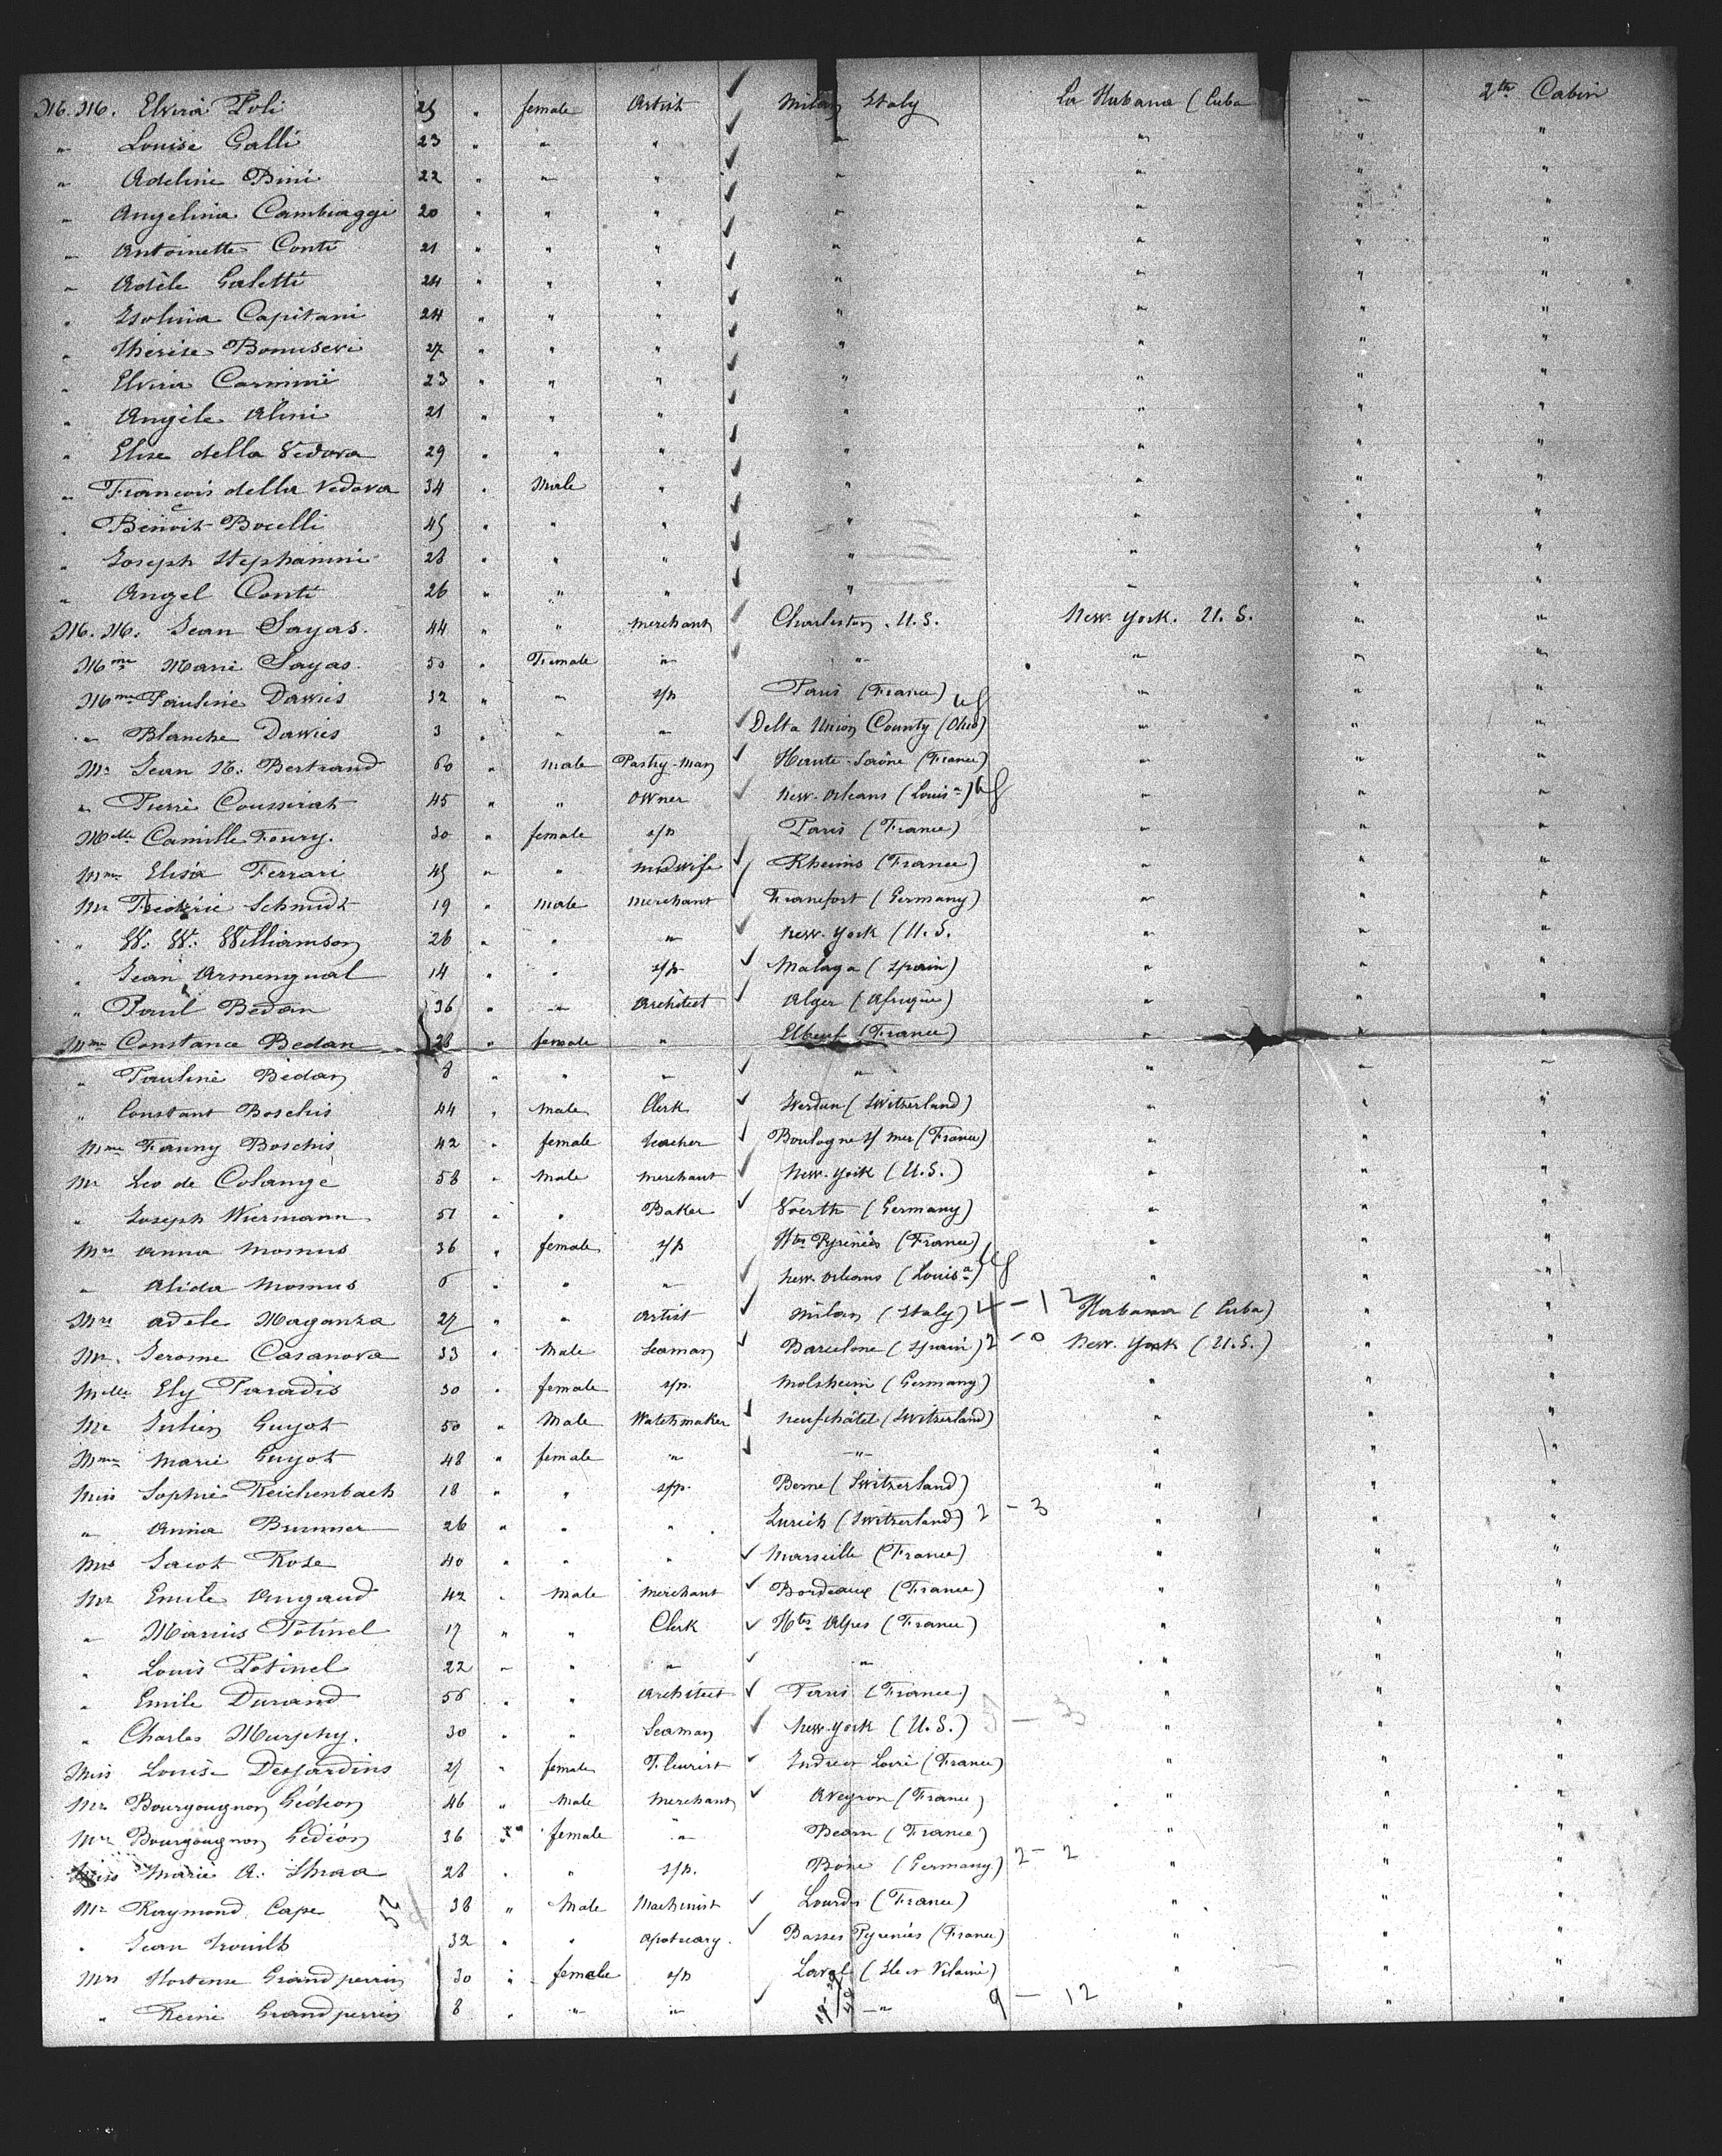 M. M. Elvira Poli 25 " female Artist Milan Italy La Habana (Cuba " 2th Cabin
" Louise Galli 23 " " " " " " "
" Adeline Bini 22 " " " " " " "
" Angelina Cambiaggi 20 " " " " " " "
" Antoinette Conti 21 " " " " " " "
" Adèle Galetti 24 " " " " " " "
" Isolina Capitani 24 " " " " " " "
" Thérèse Bonuseri 27 " " " " " " "
" Elvira Carmini 23 " " " " " " "
" Angèle Alini 21 " " " " " " "
" Elise della Vedova 29 " " " " " " "
" François della Vedova 34 " Male " " " " "
" Benoit Bocelli 45 " " " " " " "
" Joseph Stephanini 28 " " " " " " "
" Angel Conti 26 " " " " " " "
M. M. Jean Sayas. 44 " " Merchant Charleston. U.S. New-York. U.S. " "
Mme Marie Sayas 50 " Female " " " " "
Mme Pauline Dawis 32 " " s/p Paris (France) " " "
" Blanche Dawies 3 " " " Delta Union County (Ohio) US " " "
Mr Jean N. Bertrand 60 " male Pastry-Man Haute-Saône (France) " " "
" Pierre Coussirat 45 " " Owner New-Orleans (Louisa) US " " "
Melle Camille Foury. 30 " female s/p Paris (France) " " "
Mme Elisa Ferrari 45 " " Midwife Rheims (France) " " "
Mr Frédéric Schmidt 19 " male Merchant Francfort (Germany) " " "
" W. W. Williamson 26 " " " New-York (U.S. " " "
" Jean Armengual 14 " " s/p Malaga (Spain) " " "
" Paul Bedan 36 " " Architect Alger (Afrique) " " "
Mme Constance Bedan 28 " female " Elbeuf (France) " " "
" Pauline Bedan 8 " " " " " " "
" Constant Boschis 44 " Male Clerk Iverdun (Switzerland) " " "
Mme Fanny Boschis 42 " female Teacher Boulogne s/ mer (France) " " "
Mr Leo de Colange 58 " Male Merchant New-York (U.S.) " " "
" Joseph Wiermann 51 " " Baker Voerth (Germany) " " "
Mrs Anna Momus 36 " female s/p Htes Pyrénées (France) " " "
" Alida Momus 6 " " " New-Orleans (Louisa) US " " "
Mrs Adele Maganza 27 " " Artist Milan (Italy) 4-12 Habana (Cuba) " "
Mr. Jerome Casanova 33 " Male Seaman Barcelone (Spain) 2-0 New-York (U.S.) " "
Melle Ely Paradis 30 " female s/p. Molsheim (Germany) " " "
Mr Julien Guyot 50 " Male Watchmaker Neufchâtel (Switzerland) " " "
Mme Marie Guyot 48 " female " " " " "
Miss Sophie Reichenbach 18 " " s/p. Berne (Switzerland) " " "
" Anna Brunner 26 " " " Zurich (Switzerland) 2-3 " " "
Mrs Jacot Rose 40 " " " Marseille (France) " " "
Mr Emile Augaud 42 " Male Merchant Bordeaux (France) " " "
" Marius Potinel 17 " " Clerk Htes Alpes (France) " " "
" Louis Potinel 22 " " " " " " "
" Emile Durand 56 " " Architect Paris (France) " " "
" Charles Murphy. 30 " " Seaman New-York (U.S.) 5-3 " " "
Miss Louise Desjardins 27 " female Fleurist Indre et Loire (France) " " "
Mr Bourgougnon Gédéon 46 " Male Merchant Aveyron (France) " " "
Mrs Bourgougnon Gédéon 36 " female " Bearn (France) " " "
Miss Marie A. 28 " " s/p. (Germany) 2-2 " " "
Mr Raymond Cape 52 38 " Male Machinist Lourdes (France) " " "
" Jean 32 " " Apotecary. Basses Pyrénées (France) " " "
Mrs Hortense Grandperrin 30 " female s/p Laval (Ile et Vilaine) " " "
" Reine Grandperrin 8 " " " " 9-12 " " "